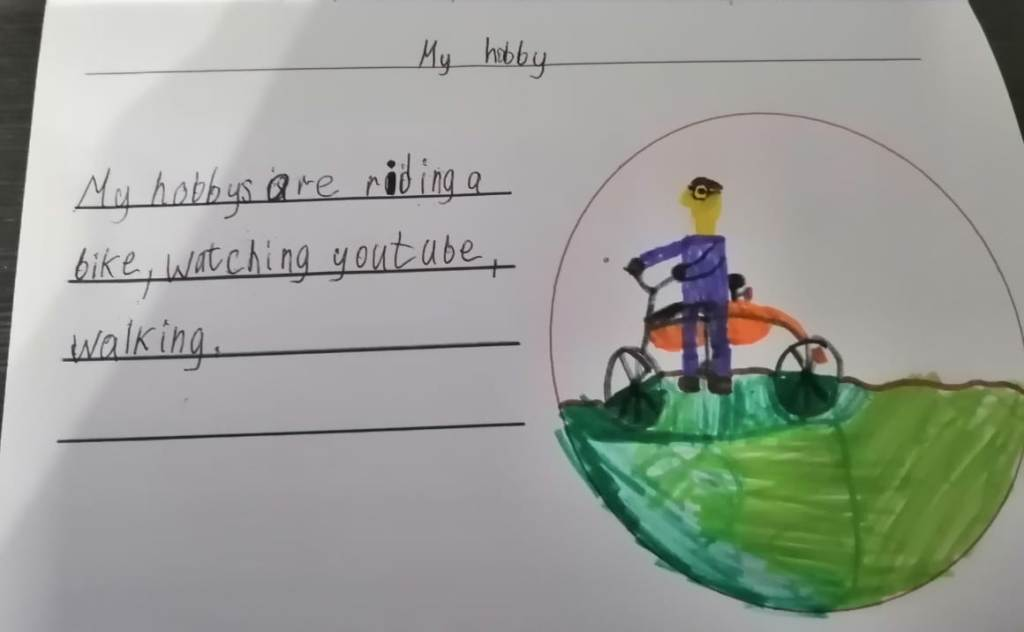 My hobby
My hobbys are riding a
bike, watching youtube,
walking.